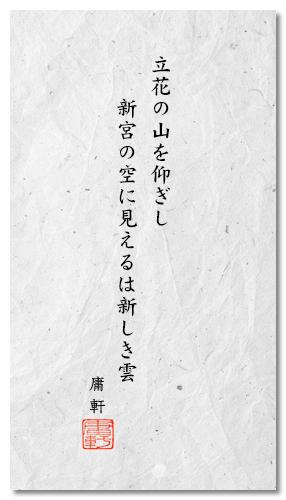 立花の山を仰ぎし
新宮の空に見えるは新しき雲
庸軒
庸軒